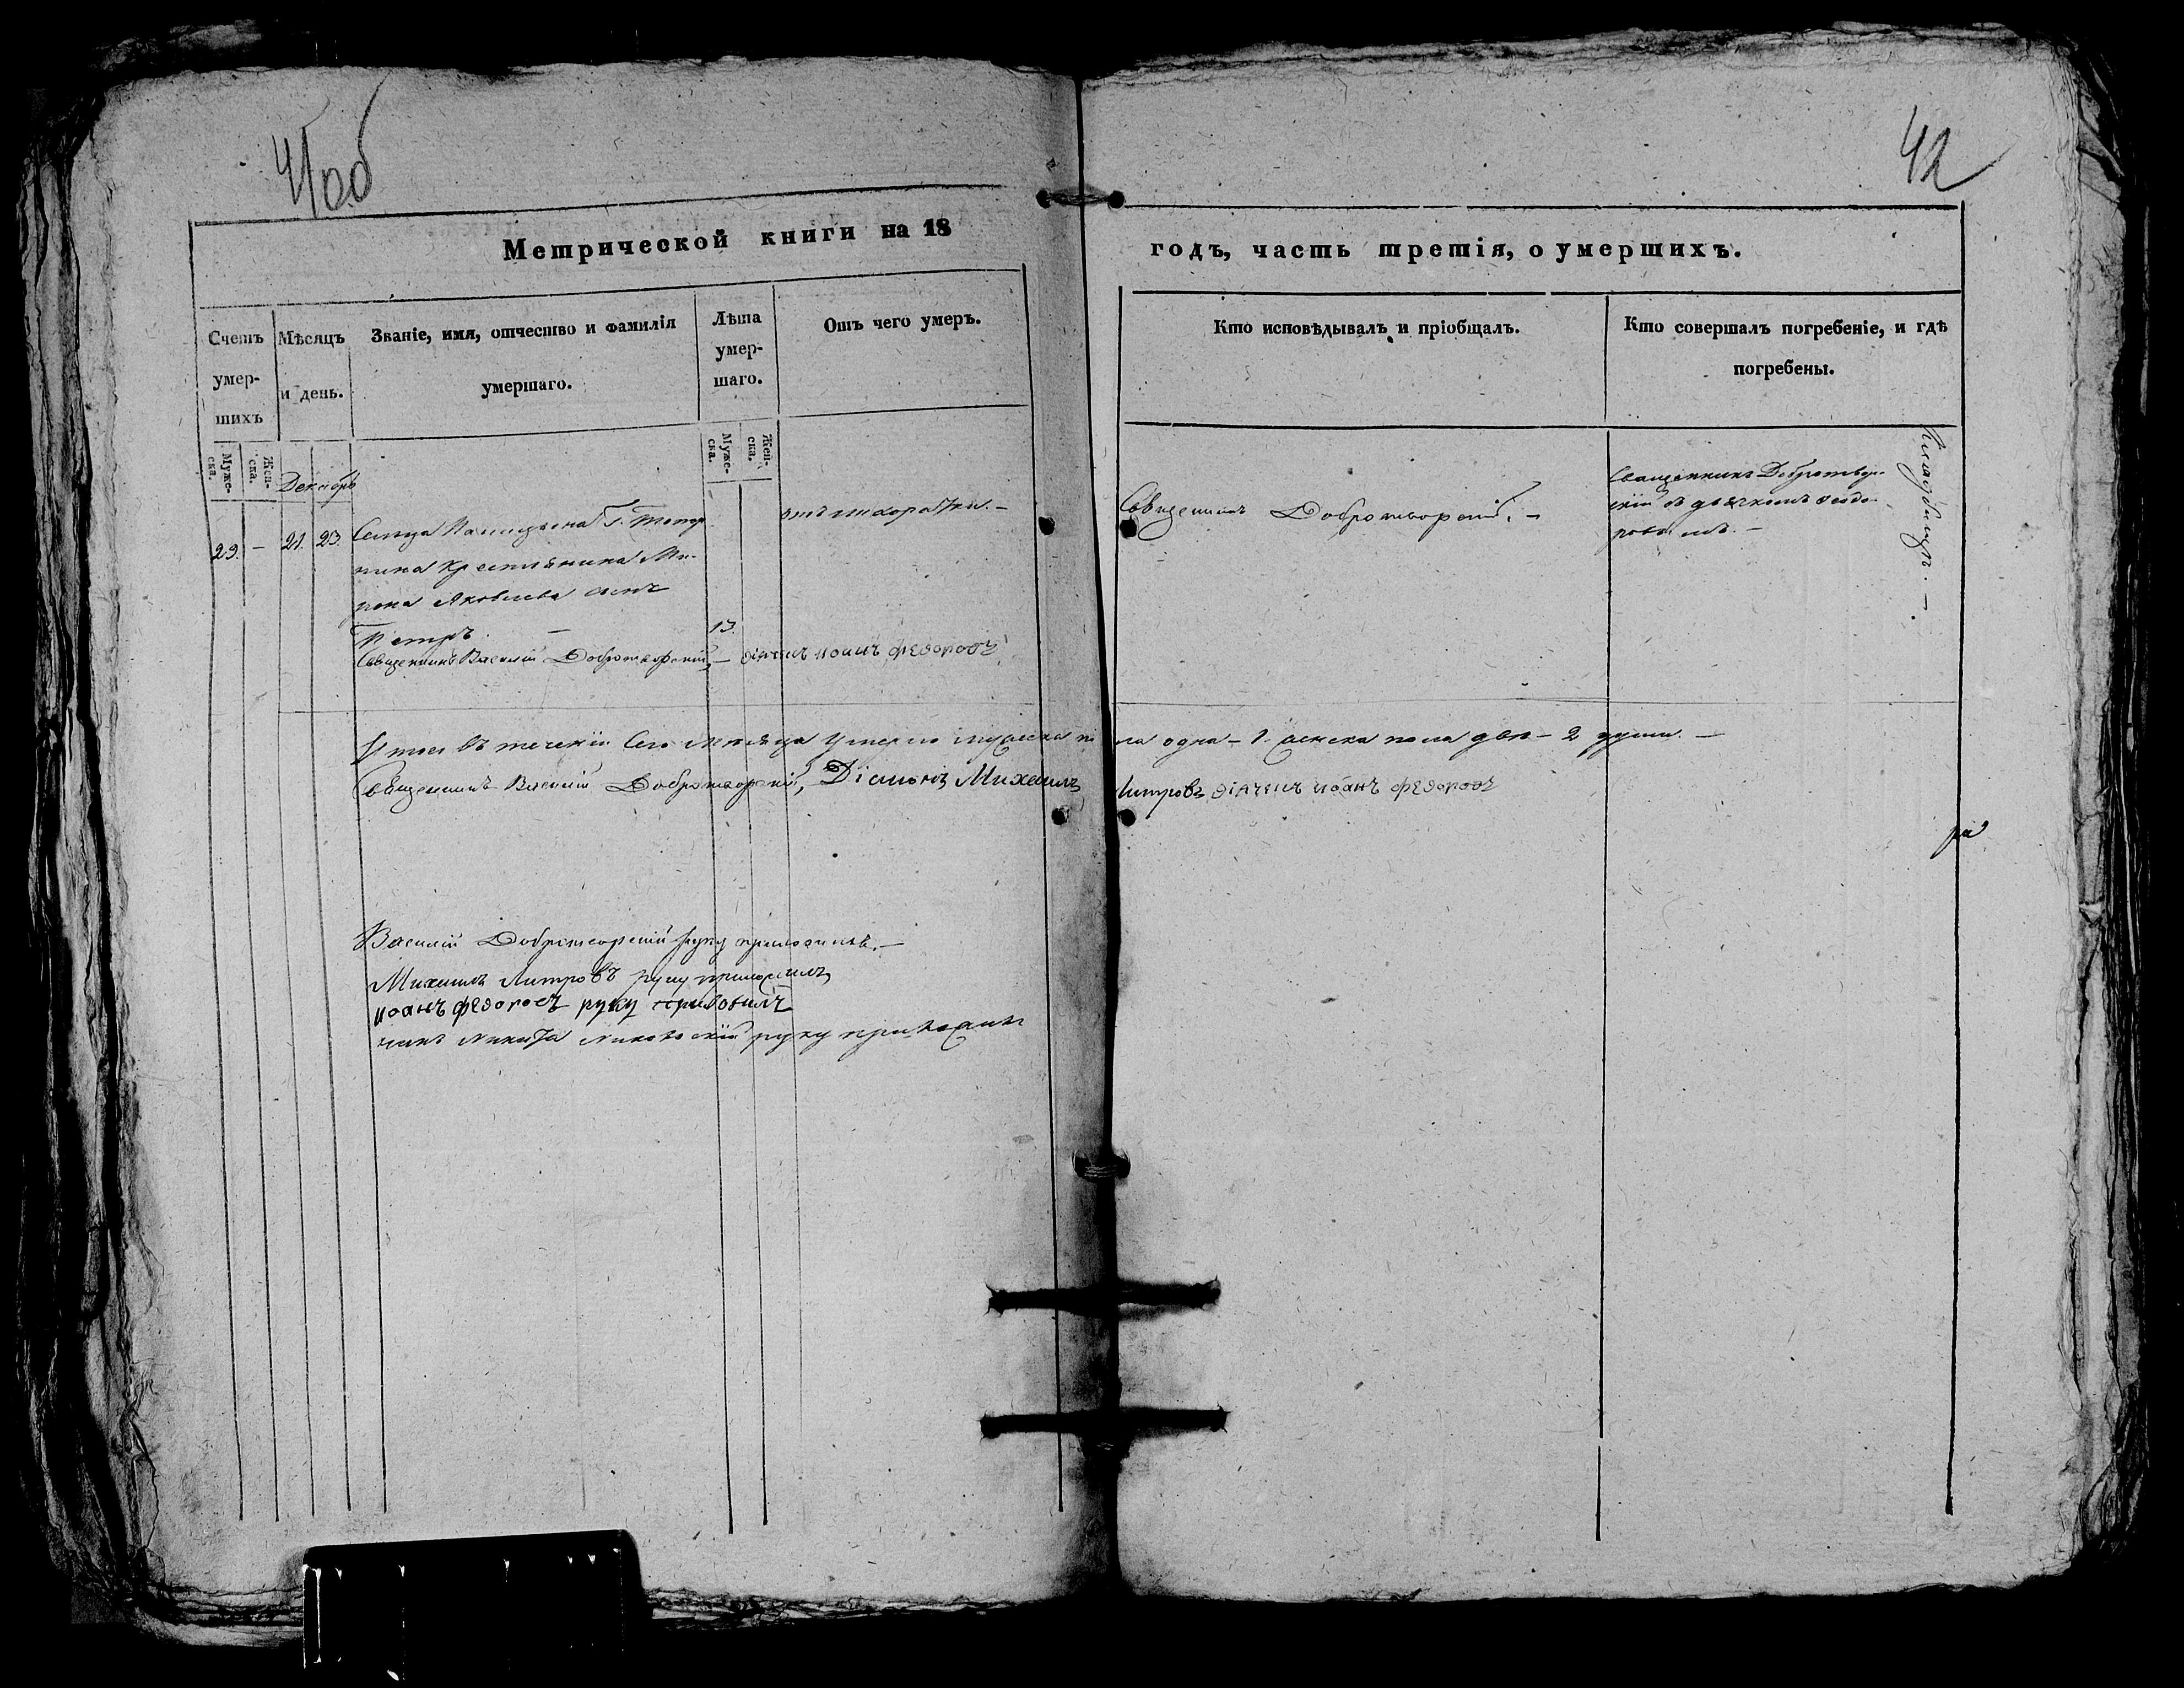 41об
42
Метрической книги на 18 годъ, часть третія, о умершихъ.
Счетъ умер-шихъ
Муже-ска.
Жен-ска.
Мѣсяцъ и день.
Званіе, имя, отчество и фамилія умершаго.
Лѣта умер-шаго.
Муже-ска.
Жен-ска.
Отъ чего умеръ.
Кто исповѣдывалъ и пріобщалъ.
Кто совершалъ погребеніе, и гдѣ погребены.
Декабрь
29. — 21. 23.
Сельца Г. Топор-
нина Крестьянина Ми-
рона Яковлева сынъ
Петръ. —
13.
отъ
Священникъ Добротворскій. —
Священникъ Добротвор-
скій съ дьячкомъ Ѳеодо-
ровымъ. —
Священникъ Василій Добротворскій, — діячекъ иоанъ федоровъ
Итого въ теченіи сего мѣсяца умерло мужеска пола одна — 1. женска пола двѣ — 2 души. —
Священникъ Василій Добротворскій, Діаконъ Михаилъ Литровъ діячекъ иоанъ федоровъ
Василій Добротворскій руку приложилъ. —
Михаилъ Литровъ руку приложилъ
иоанъ федоровъ руку приложилъ
никита руку приложилъ